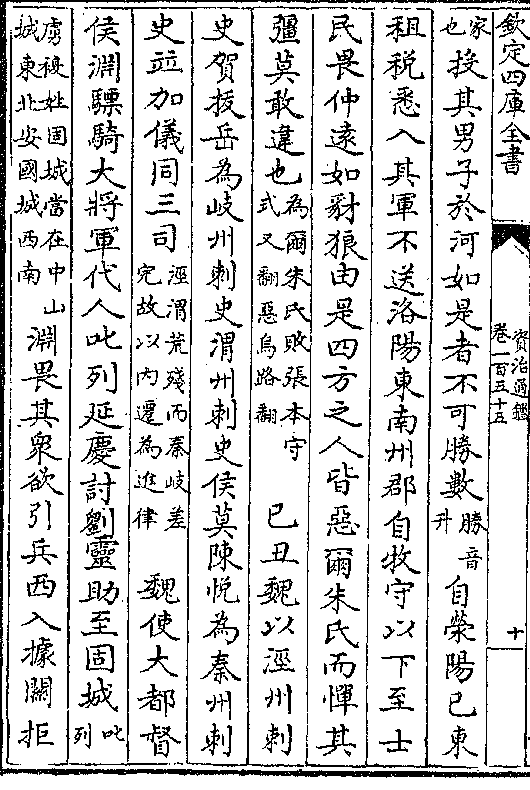 欽定四庫全書
資治通鑑
卷一百五十五
十
家
也
投其男子於河如是者不可勝數
勝音
升
自滎陽已東
租税悉入其軍不送洛陽東南州郡自牧守以下至士
民畏仲逺如豺狼由是四方之人皆惡爾朱氏而憚其
彊莫敢違也
為爾朱氏敗張本守
式又翻惡烏路翻
己丑魏以涇州刺
史賀拔岳為岐州刺史渭州刺史侯莫陳悦為秦州刺
史竝加儀同三司
涇渭荒殘而秦岐差
完故以内遷為進律
魏使大都督
侯淵驃騎大將軍代人叱列延慶討劉靈助至固城
叱
列
虜複姓固城當在中山
城東北安國城西南
淵畏其衆欲引兵西入據關拒